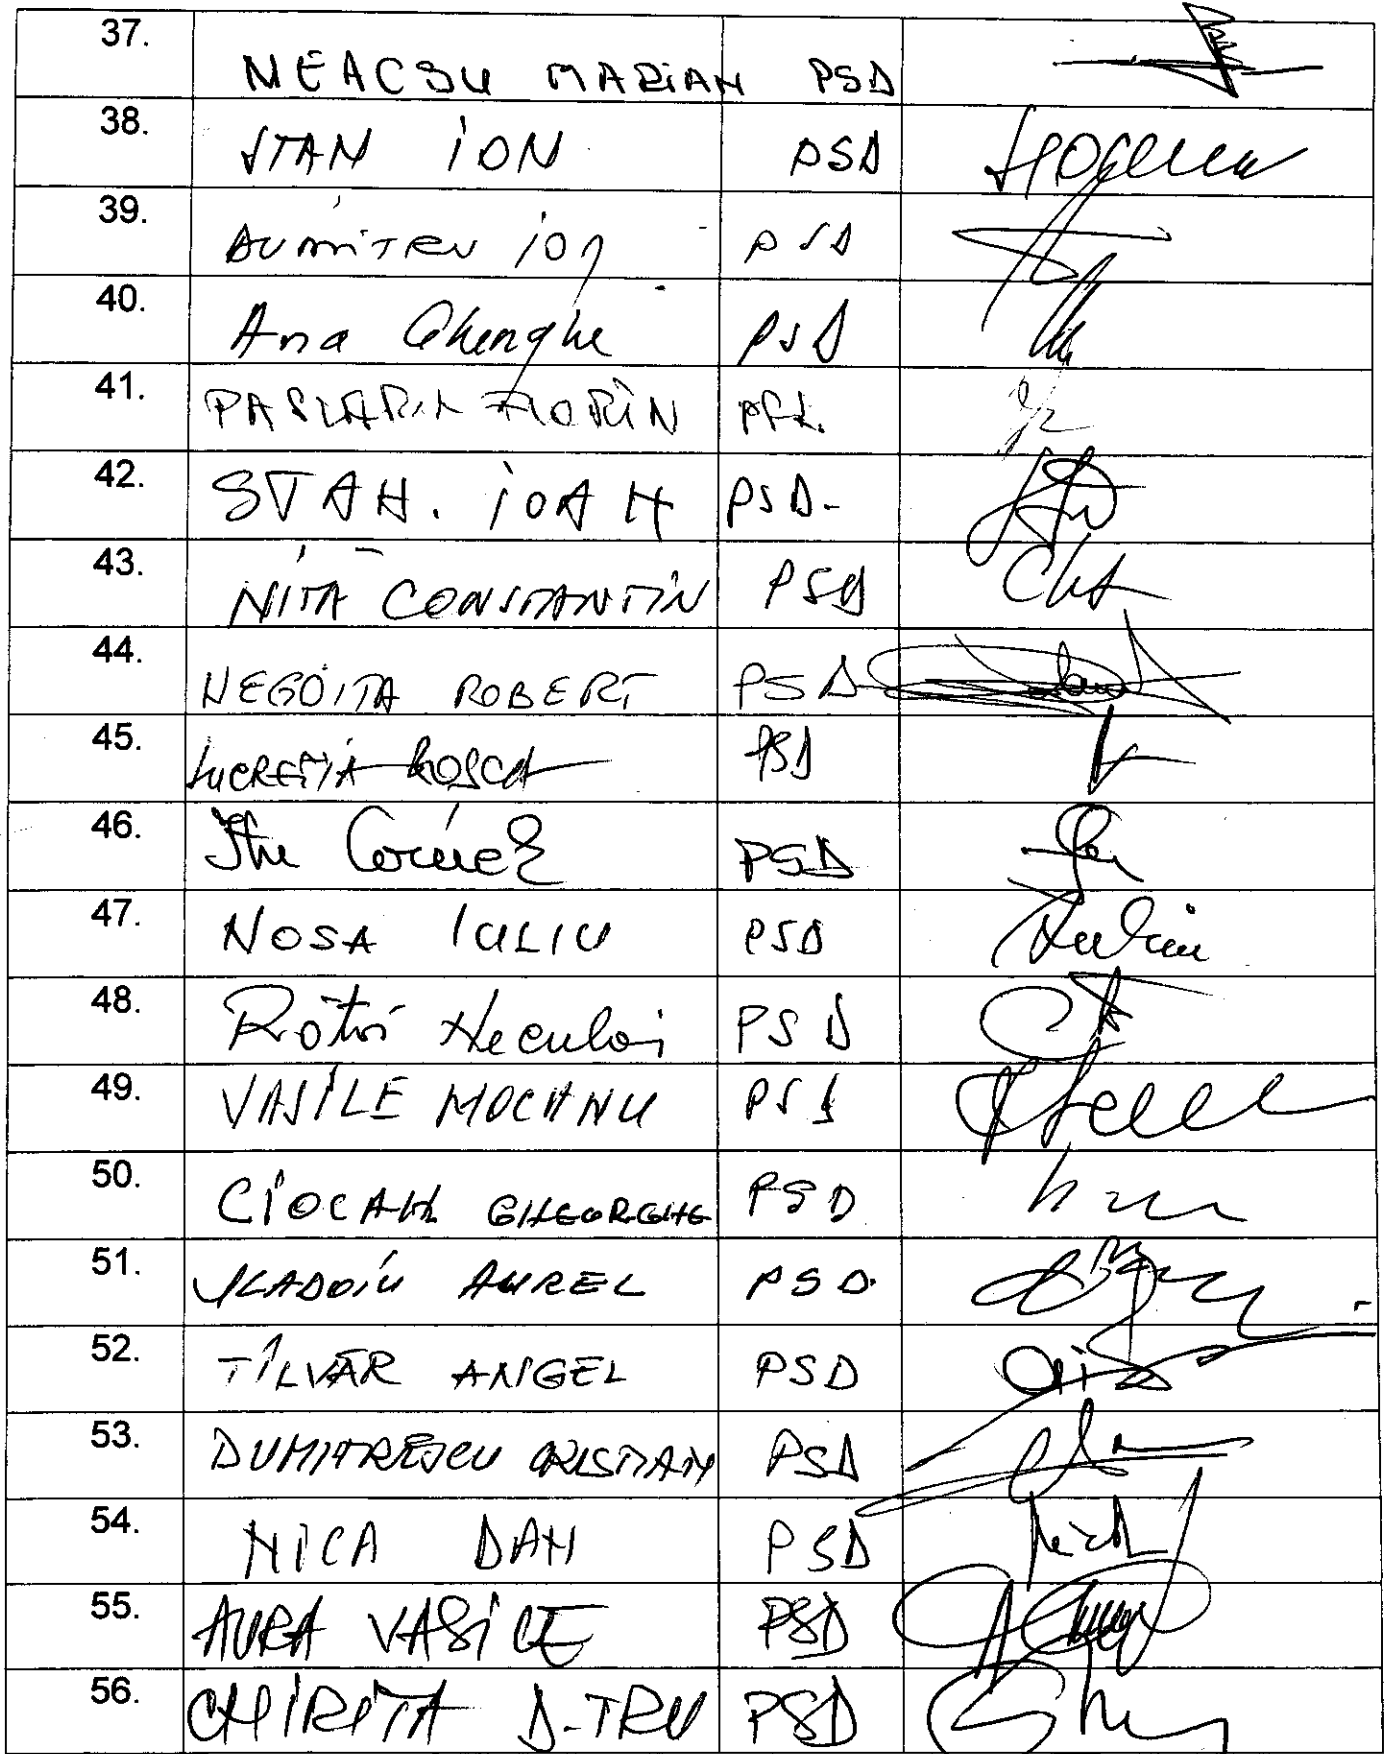 37. NEACSU MARIAN PSD
38. STAN ION PSD
39. DUMITRU ION PSD
40. Ana Gheorghe PSD
41. PASLARU FLORIN PSD
42. STAN. IOAN PSD.
43. NITA CONSTANTIN PSD
44. NEGOITA ROBERT PSD
45. LUCRETIA ROSCA PSD
46. Itu Cornel PSD
47. NOSA IULIU PSD
48. Rățoi Neculai PSD
49. VASILE MOCANU PSD
50. CIOCAN GHEORGHE PSD
51. VLADOIU AUREL PSD.
52. TÎLVĂR ANGEL PSD
53. DUMITRESCU CRISTIAN PSD
54. NICA DAN PSD
55. AURA VASILE PSD
56. CHIRITA D-TRU PSD